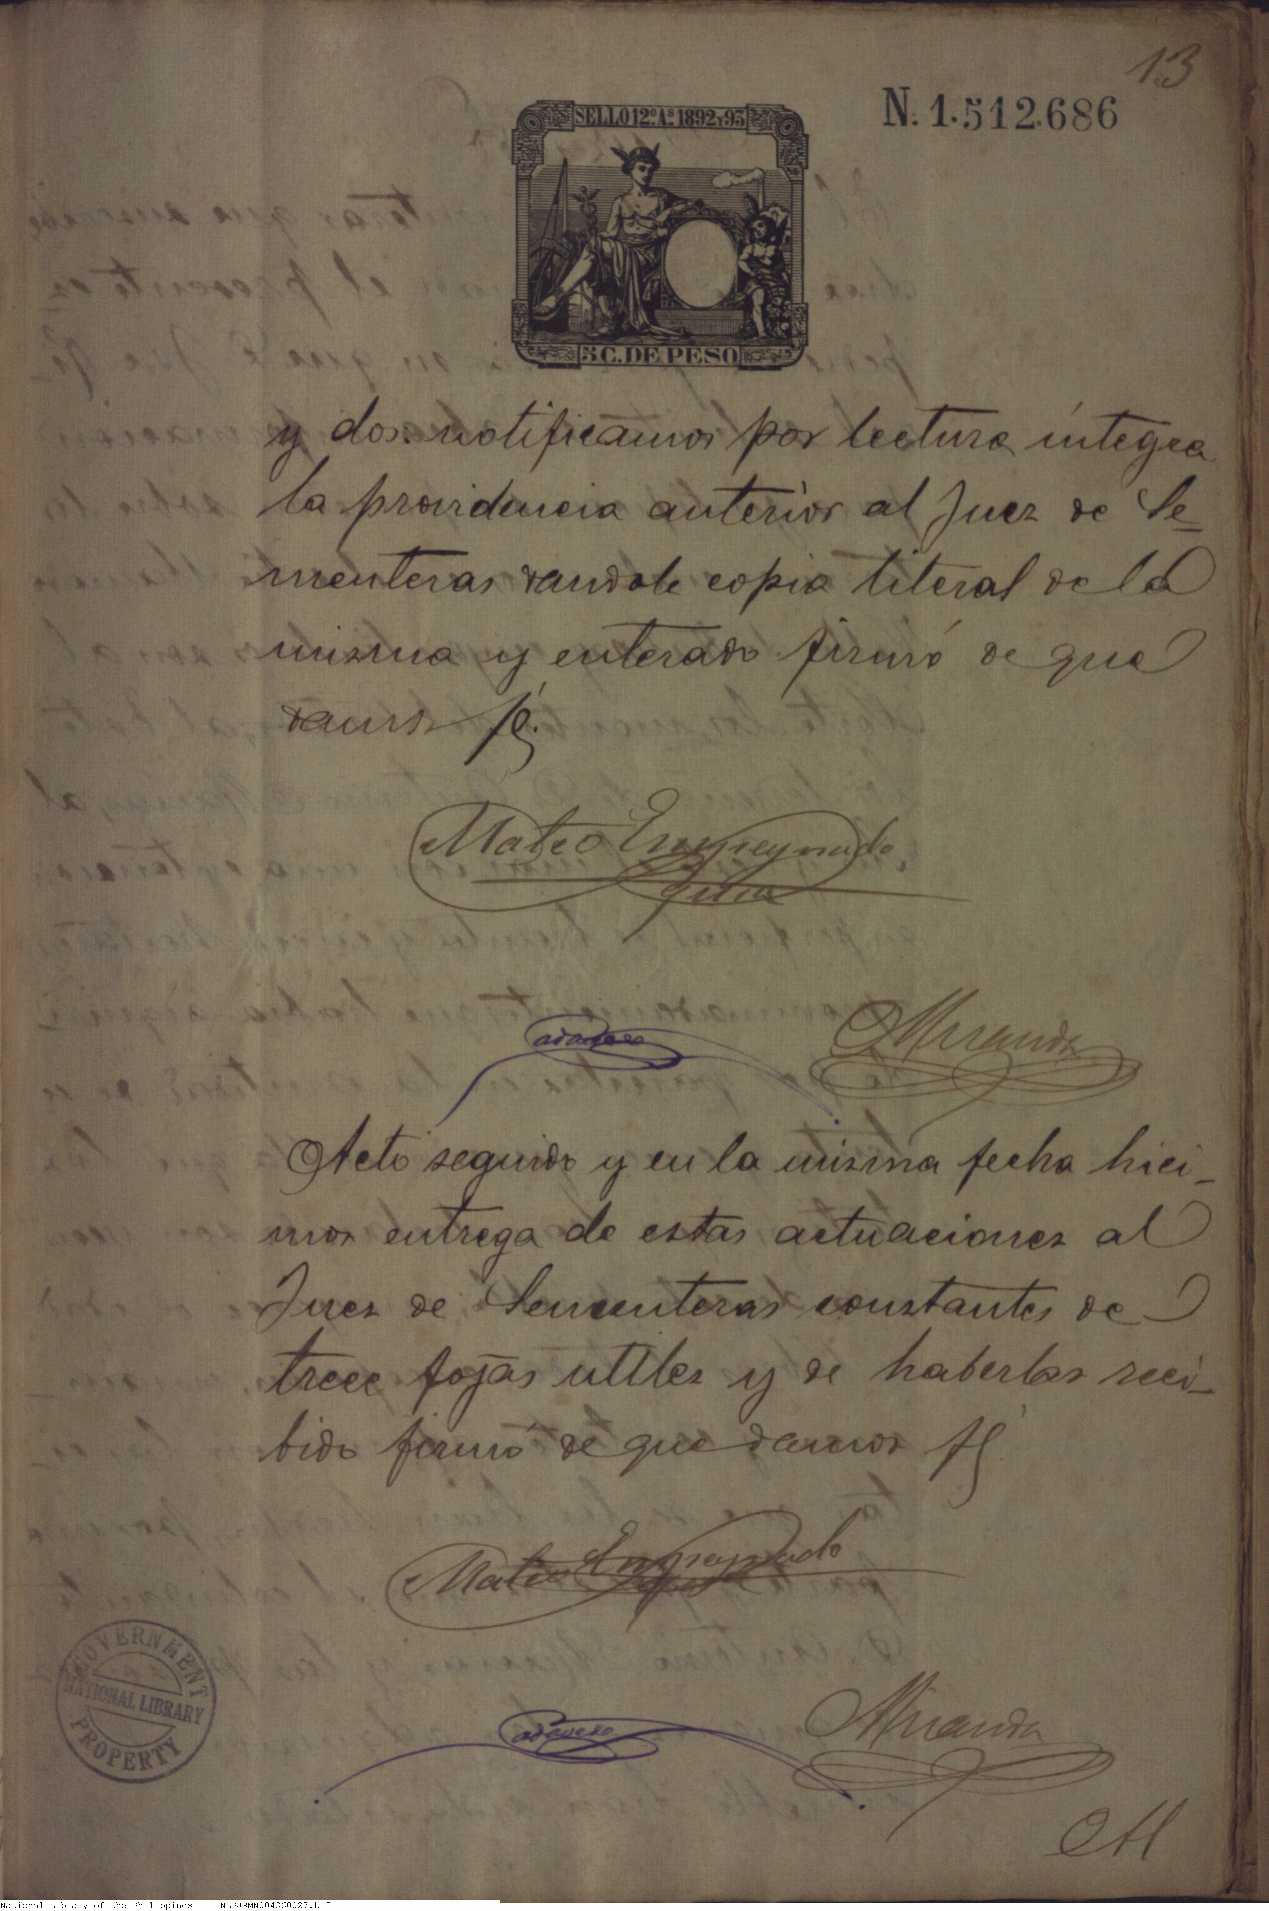 13
N. 1.512.686
SELLO 12º Aº 1892 Y 93
5 C. DE PESO
y dos notificamos por lectura íntegra
la providencia anteriòr al Juez de Se-
menteras dandole copia literal de la
misma y enterado firmó de que
damos fé.
Mateo Empeynado
adavero Miranda
Acto seguido y en la misma fecha hici-
mos entrega de estas actuaciones al
Juez de Sementeras constantes de
trece fojas utiles y de haberlas reci-
bido firmó de que damos fé
Mateo Empeynado
Cadavero Miranda
GOVERNMENT
NATIONAL LIBRARY
PROPERTY
Al
National Library of the Philippines